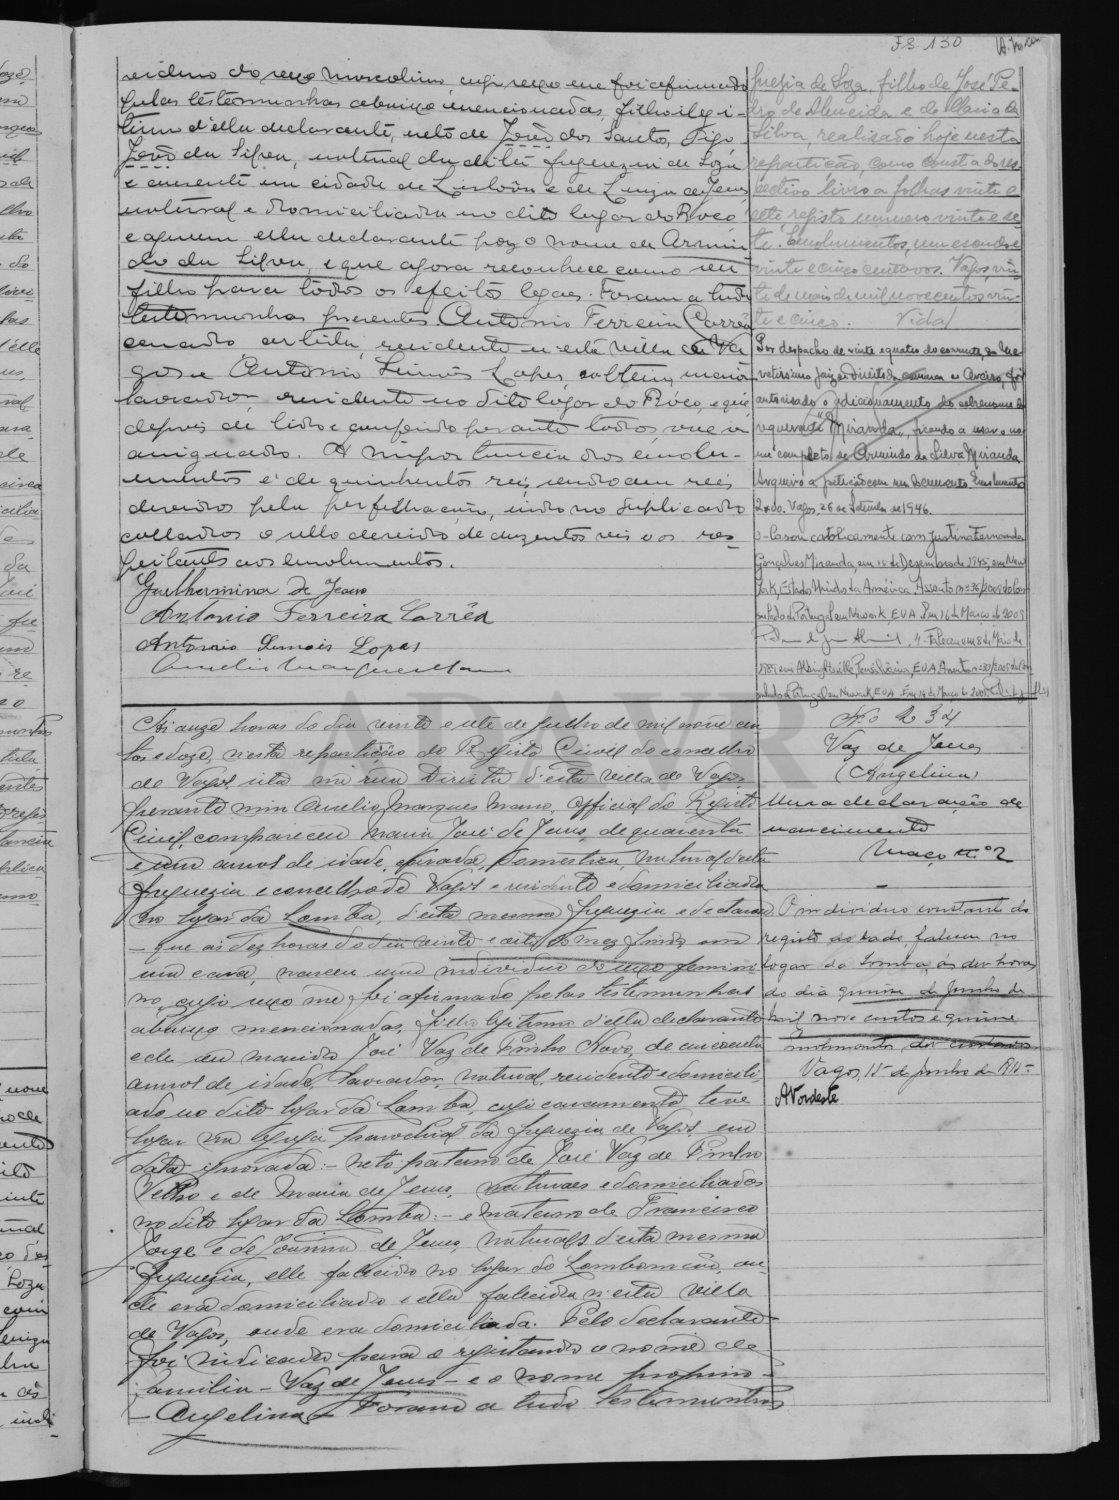 Fs. 130
viduo do sexo masculino, cujo sexo me foi afirmado
pelas testemunhas abaixo mencionadas, filho illegi-
timo d'ella declarante, neto de João dos Santos
João da Silva, natural da dita freguezia de Soza
e ausente em cidade de Lisbôa e de Luiza de Jesus,
natural e domiciliada no dito logar do Rioco,
e a quem ella declarante poz o nome de Armin-
do da Silva, e que agora reconhece como seu
filho para todos os efeitos legaes. Foram a tudo
testemunhas presentes Antonio Ferreira Corrêa
casado artista, residente n'esta villa de Va-
gos e Antonio Simões Lopes, solteiro, maior
lavrador, residente no dito logar do Rioco, e que
depois de lido e conferido perante todos, vae ser
assignado. A importancia dos emolu-
mentos é de quinhentos reis, sendo cem reis
devidos pela perfilhação, indo no duplicado
collados o sello devido de duzentos reis e os res-
peitantes aos emolumentos.
Guilhermina de Jesus
Antonio Ferreira Corrêa
Antonio Simois Lopas
Aurelio Marques Mano
freguesia de Soza, filha de José Pe-
dro de Almeida e de Maria da
Silva, realisado hoje nesta
repartição, como consta do res-
pectivo livro a folhas vinte e
sete registo numero vinte e se-
te. Emolumentos, um escudo e
vinte e cinco centavos. Vagos, vin-
te de maio de mil novecentos vin-
te e cinco. Vidal
Por despacho de vinte e quatro do corrente do Me-
retissimo Juiz de Direito da comarca de Aveiro, foi
autorisado o adicionamento do sobrenome do
requerente "Miranda", ficando a usar o no-
me completo de Armindo da Silva Miranda
Arquivo a petição com um documento. Emolumento
2$00. Vagos, 26 de Setembro de 1946.
3- Casou catolicamente com Justina Fernanda
Gonçalves Miranda, em 15 de Dezembro de 1945, em New
York, Estados Unidos da América. Assento nº 36/2005 do Con-
sulado de Portugal em Newark, EUA. Em 16 de Março de 2005
4- Faleceu em 8 de Maio de
1989 em Pensilvânia, EUA. Assento nº 30/2005 do Con-
sulado de Portugal em Newark, EUA. Em 16 de Março de 2005
Ás onze horas do dia vinte e sete de Julho de mil nove cen
tos e doze, n'esta repartição do Registo Civil do concelho
de Vagos, sita na rua Direita d'esta villa de Vagos
perante mim Aurelio Marques Mano, Official do Registo
Civil, compareceu Maria José de Jesus, de quarenta
e um annos de idade, casada, domestica, natural d'esta
freguezia e concelho de Vagos e residente e domiciliada
no logar da Lomba, d'esta mesma freguezia e declarou
- que ás dez horas do dia vinte e oito do mez findo em
sua casa, nasceu um individuo do sexo femini-
no, cujo sexo me foi afirmado pelas testemunhas
abaixo mencionadas, filha legitima d'ella declarante
e de seu marido José Vaz de Pinho Novo, de cincoenta
annos de idade, lavrador, natural, residente e domicili-
ado no dito logar da Lomba, cujo casamento teve
logar na Egreja parochial da freguezia de Vagos, em
data ignorada:- neto paterno de José Vaz de Pinho
Velho e de Maria de Jesus, naturaes e domiciliados
no dito logar da Lomba:- e materno de Francisco
Jorge e de Joanna de Jesus, naturaes d'esta mesma
freguezia, elle fallecido no logar do Lombomeão, on-
de era domiciliado e ella fallecida n'esta villa
de Vagos, onde era domiciliada. Pelo declarante
foi indicado para o registando o nome de
familia - Vaz de Jesus - e o nome proprio -
- Angelina - Foram a tudo testemunhas
No 234
Vaz de Jesus
(Angelina)
Uma declaração de
nascimento
Maço n.º 2
O individuo constante do
registo ao lado, faleceu no
logar da Lomba, ás dez horas
do dia quinze de Junho de
mil nove centos e quinze
Vagos, 15 de junho de 1915-
A Nordeste